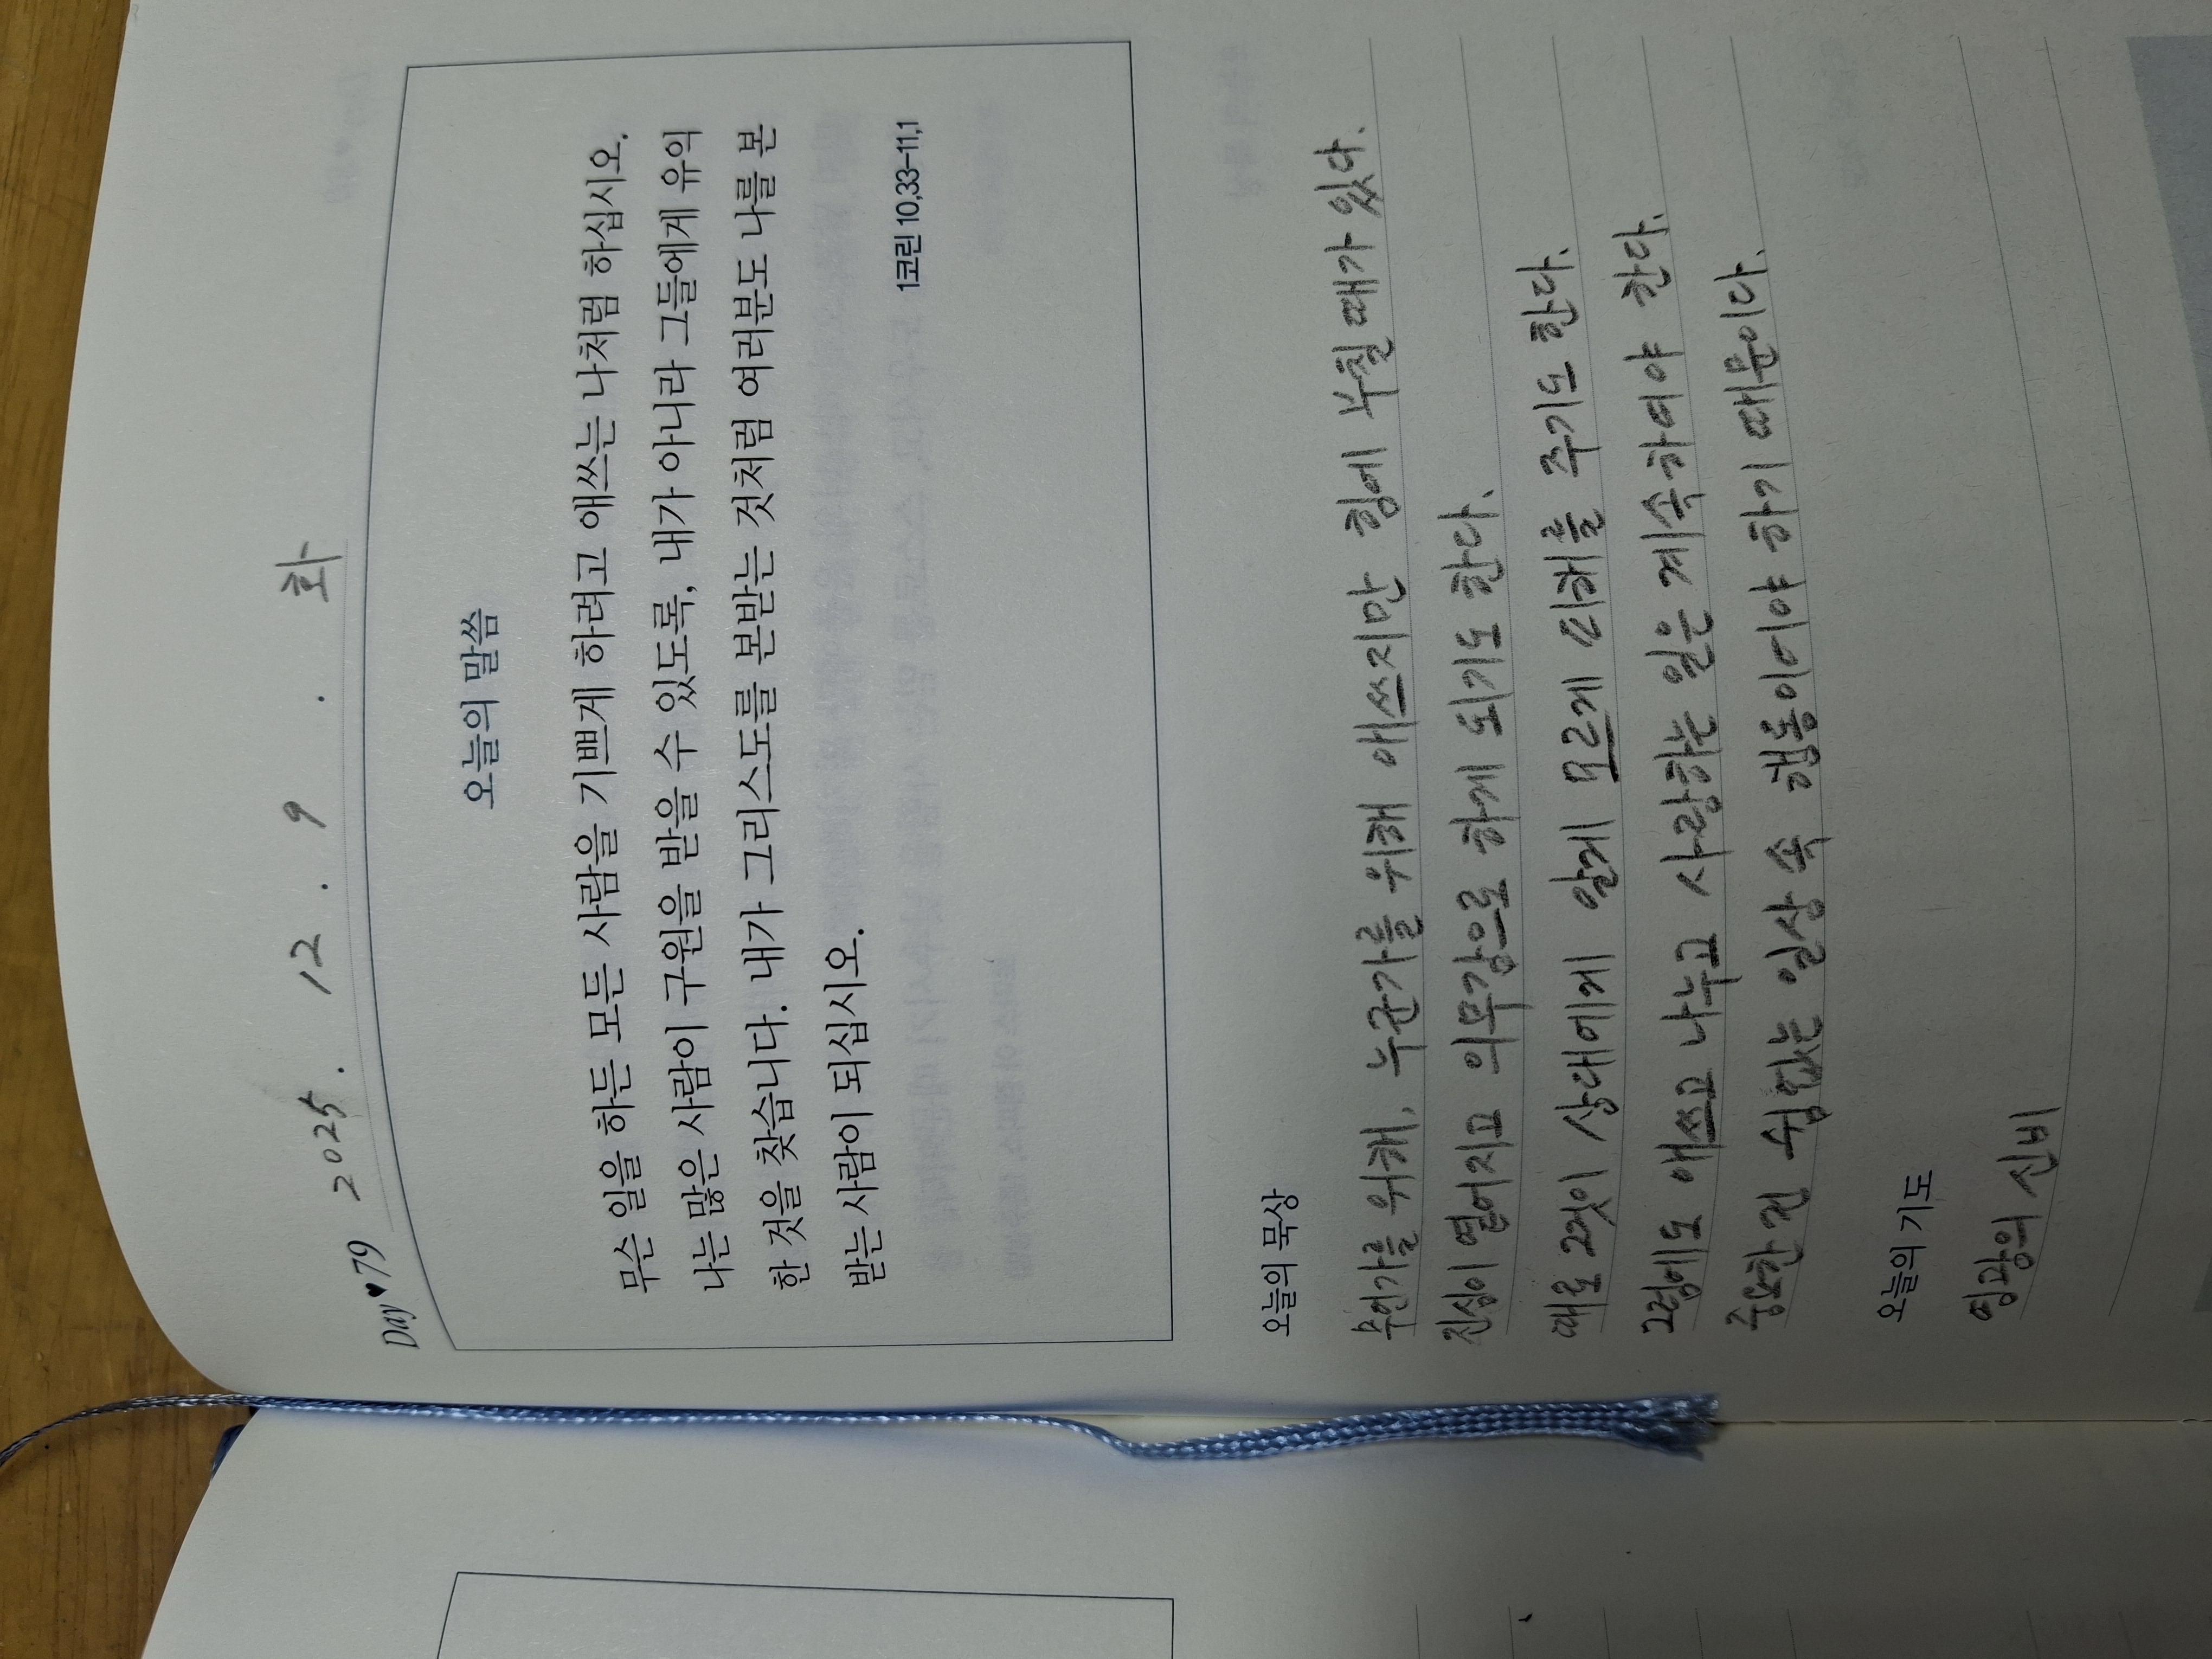 Day♥79 2025. 12. 9. 화
오늘의 말씀
무슨 일을 하든 모든 사람을 기쁘게 하려고 애쓰는 나처럼 하십시오.
나는 많은 사람이 구원을 받을 수 있도록, 내가 아니라 그들에게 유익
한 것을 찾습니다. 내가 그리스도를 본받는 것처럼 여러분도 나를 본
받는 사람이 되십시오.
1코린 10,33-11,1
오늘의 묵상
무언가를 위해, 누군가를 위해 애쓰지만 힘에 부칠 때가 있다.
진심이 옅어지고 의무감으로 하게 되기도 한다.
때로 그것이 상대에게 알게 모르게 피해를 주기도 한다.
그럼에도 애쓰고 나누고 사랑하는 일은 계속하여야 한다.
중요한 건 쉼없는 일상 속 행동이어야 하기 때문이다.
오늘의 기도
영광의 신비